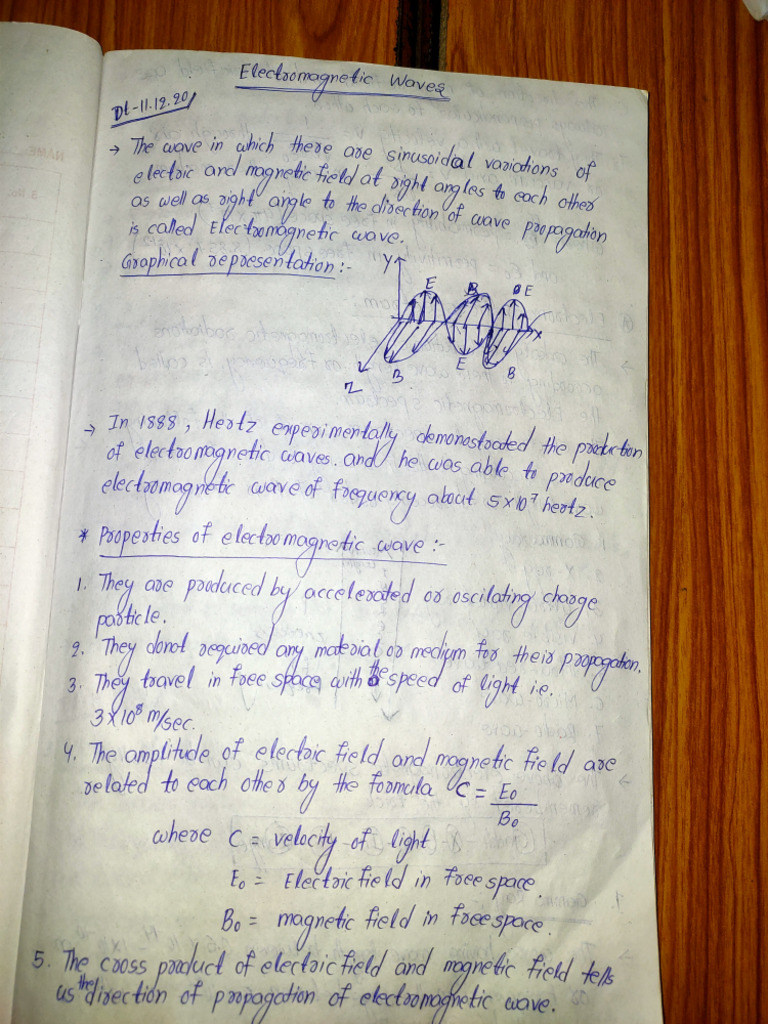 Electromagnetic Waves
Dt-11.12.20
→ The wave in which there are sinusoidal variations of
electric and magnetic field at right angles to each other
as well as right angle to the direction of wave propagation
is called Electromagnetic wave.
Graphical representation :-
Y
E B E
X
E
Z B B
→ In 1888, Hertz experimentally demonostrated the production
of electromagnetic waves. and he was able to produce
electromagnetic wave of frequency about 5×10⁷ hertz.
* Properties of electromagnetic wave :-
1. They are produced by accelerated or oscilating charge
particle.
2. They donot required any material or medium for their propagation.
3. They travel in free space with the speed of light i.e.
3×10⁸ m/sec.
4. The amplitude of electric field and magnetic field are
related to each other by the formula C = E₀/B₀
where C = velocity of light
E₀ = Electric field in free space
B₀ = magnetic field in free space.
5. The cross product of electric field and magnetic field tells
us the direction of propagation of electromagnetic wave.